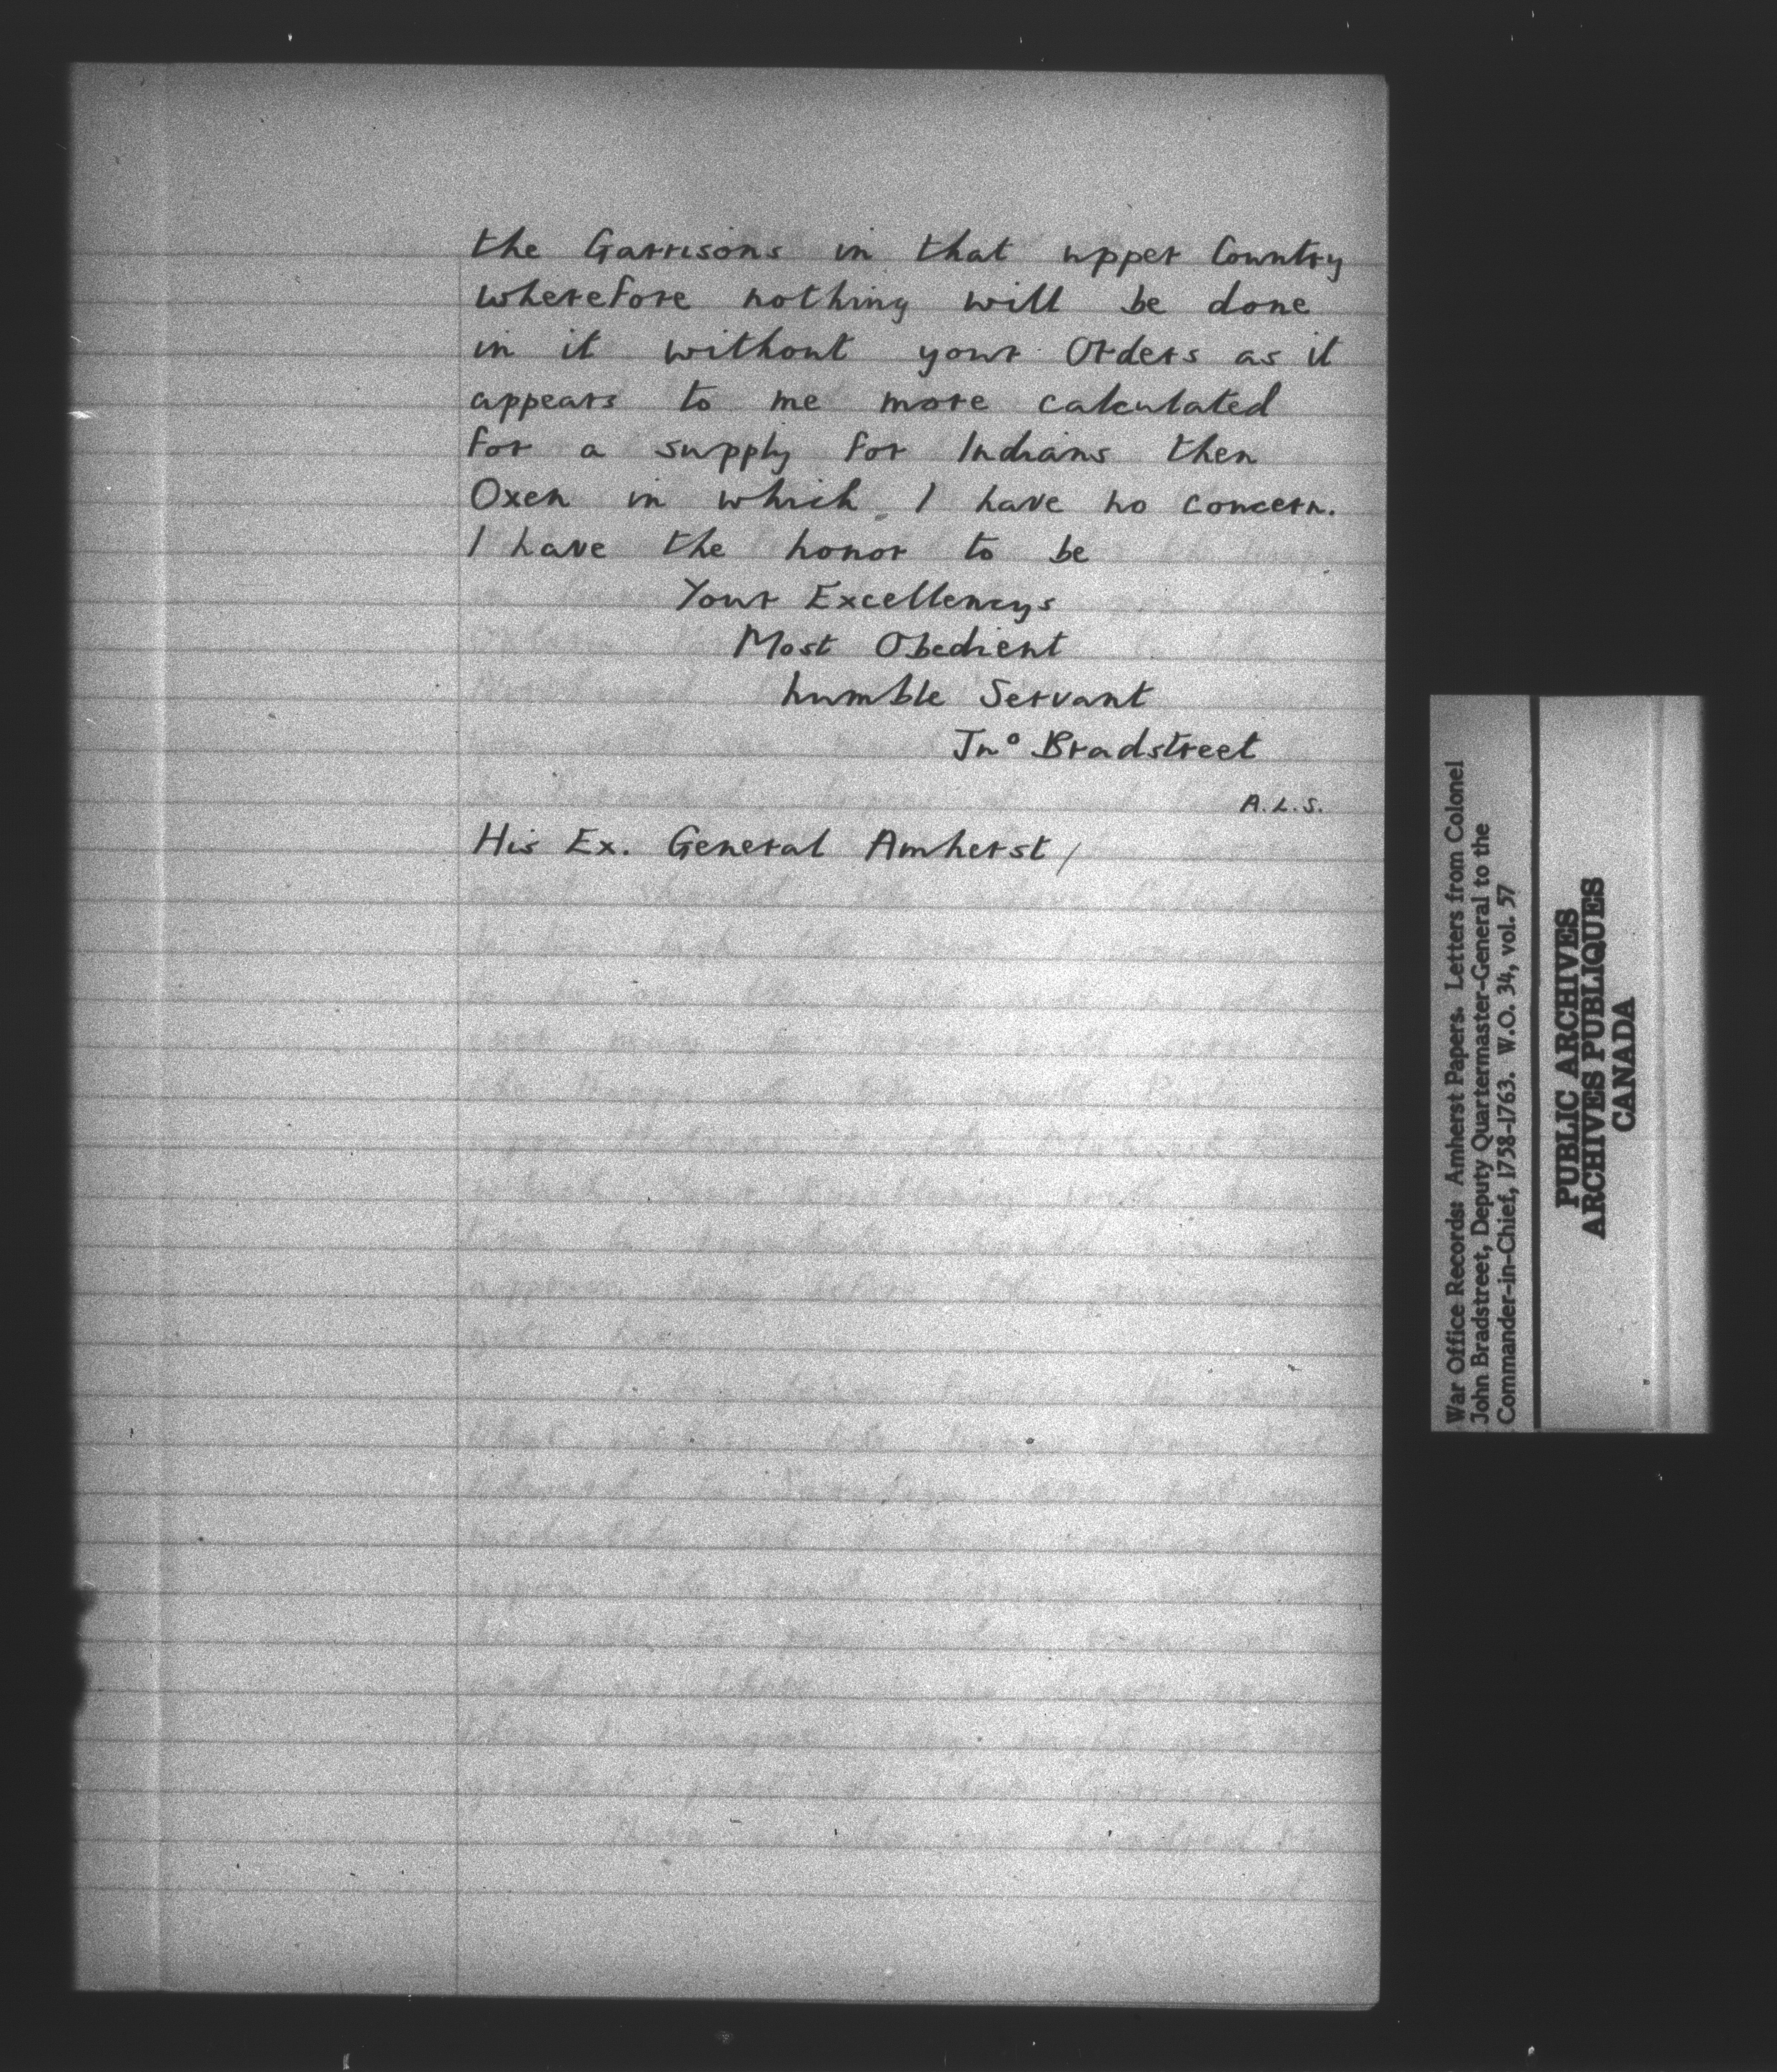 the Garrisons in that upper Country
wherefore nothing will be done
in it without your Orders as it
appears to me more calculated
for a supply for Indians then
Oxen in which I have no concern.
I have the honor to be
Your Excellencys
Most Obedient
humble Servant
Jnº Bradstreet
A.L.S.
His Ex. General Amherst/
War Office Records: Amherst Papers. Letters from Colonel
John Bradstreet, Deputy Quartermaster-General to the
Commander-in-Chief, 1758-1763. W.O. 34, vol. 57
PUBLIC ARCHIVES
ARCHIVES PUBLIQUES
CANADA